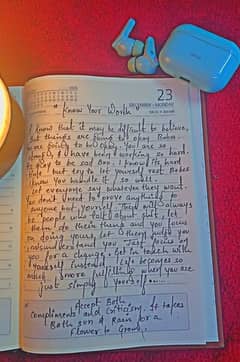 23
DECEMBER - MONDAY
"Know Your Worth"
I know that it may be difficult to believe,
but things are going to be okay. Babes
are going to be okay. You are so
strong & have been working so hard.
It's okay to be sad One. I know it's hard
but try to let yourself rest Babes
I know you handle it so well.
Let everyone say whatever they want.
You don't need to prove anything to
anyone but yourself. There will always
be people who talk about you, let
them do their thing and you focus
on doing yours. Let them judge you
misunderstand you. Just focus on
you for a change. Get in touch with
yourself first. Life becomes so
much more fulfilling when you are
just simply yourself.....
Accept Both
Compliments and Criticism. It takes
Both sun & Rain for a
Flower to Grow.